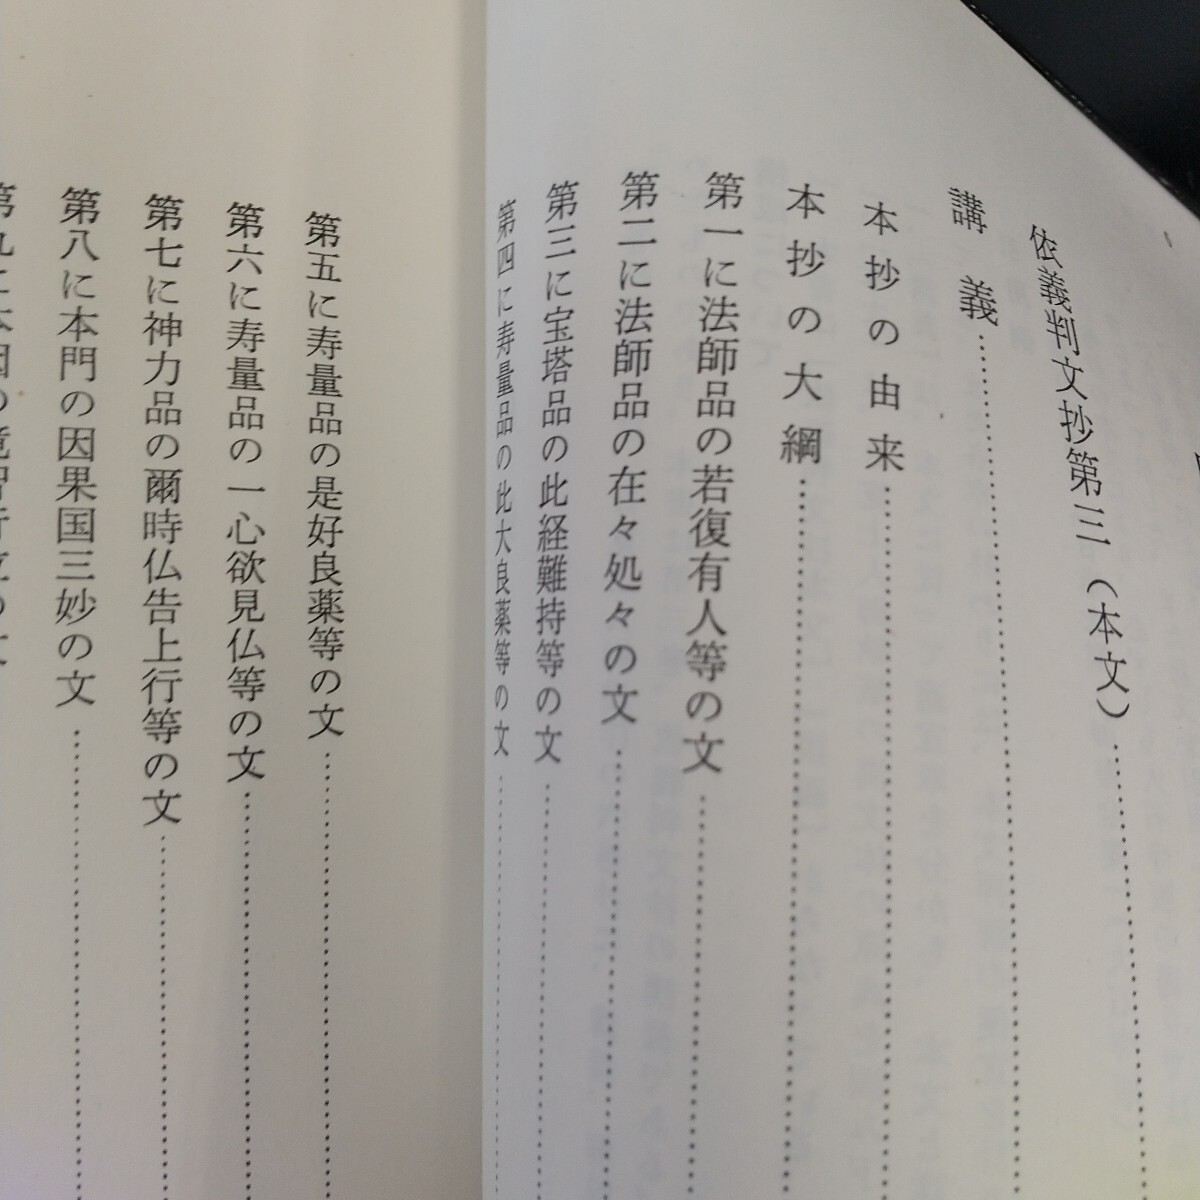 依義判文抄第三（本文）
講義
本抄の由来
本抄の大綱
第一に法師品の若復有人等の文
第二に法師品の在々処々の文
第三に宝塔品の此経難持等の文
第四に寿量品の此大良薬等の文
第五に寿量品の是好良薬等の文
第六に寿量品の一心欲見仏等の文
第七に神力品の爾時仏告上行等の文
第八に本門の因果国三妙の文